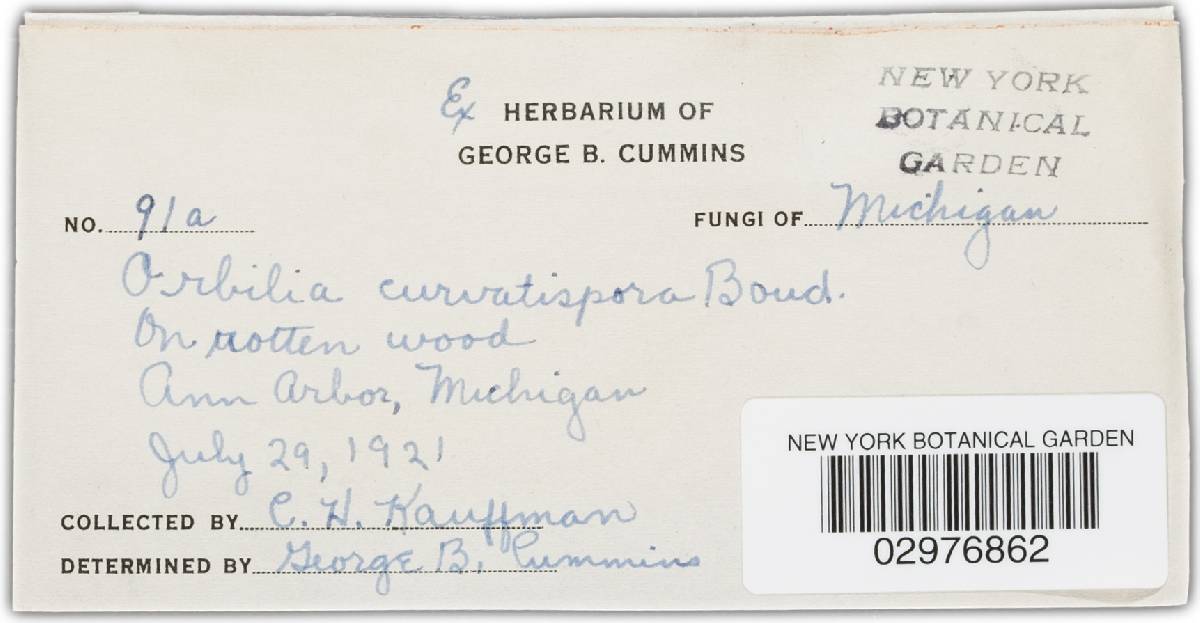 Ex HERBARIUM OF
GEORGE B. CUMMINS
NEW YORK
BOTANICAL
GARDEN
NO. 91a
FUNGI OF Michigan
Orbilia curvatispora Boud.
On rotten wood
Ann Arbor, Michigan
July 29, 1921
COLLECTED BY C. H. Kauffman
DETERMINED BY George B. Cummins
NEW YORK BOTANICAL GARDEN
02976862